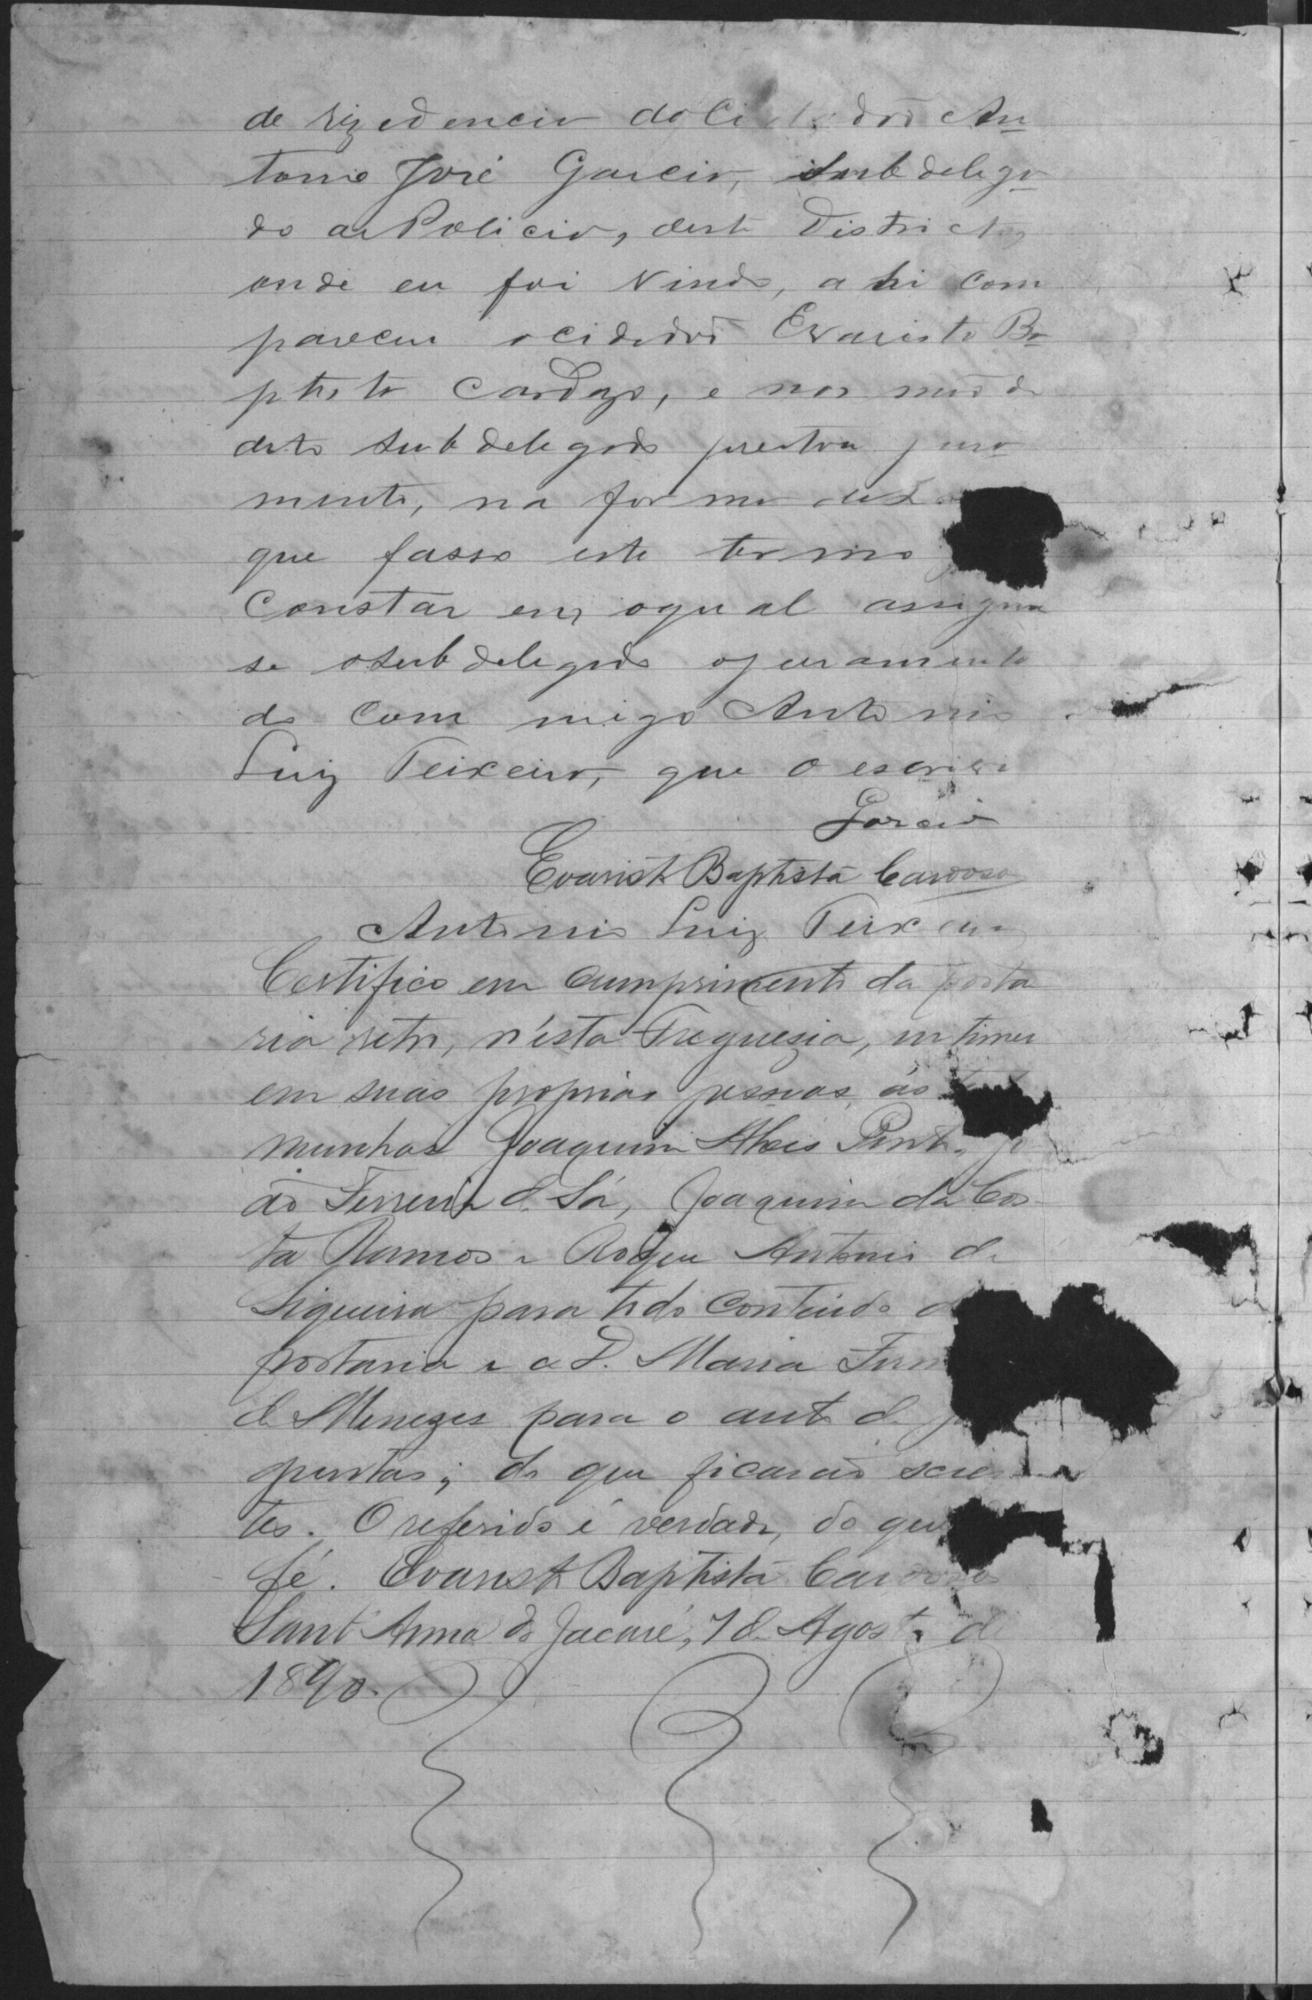 de rezidencia do Cidadão An
tonio José Garcia, Subdelega
do de Policia, deste Districto,
onde eu foi vindo, ahi com
pareceu o cidadão Evaristo Ba
ptista Cardozo, e nas mão do
dito Subdelegado prestou jura
mento, na forma da
que fasso este termo
constar em o qual assigna
se o Subdelegado o juramenta
do com migo Antonio
Luiz Teixeira, que o escrevi
Garcia
Evaristo Baptista Cardoso
Antonio Luiz Teixeira
Certifico em cumprimento da porta
ria retro, n'esta Freguezia, intimei
em suas proprias pessoas, ás
munhas Joaquim Alves Pinto, Jo
ão Ferreira de Sá, Joaquim da Cos
ta Ramos e Roque Antonio de
Siqueira para todo conteúdo
portaria e a D. Maria
de Menezes para o auto de
guntas; do que ficarão scien
tes. O referido é verdade, do que
fé. Evaristo Baptista Cardoso
Sant Anna do Jacaré, 7 de Agosto de
1890.